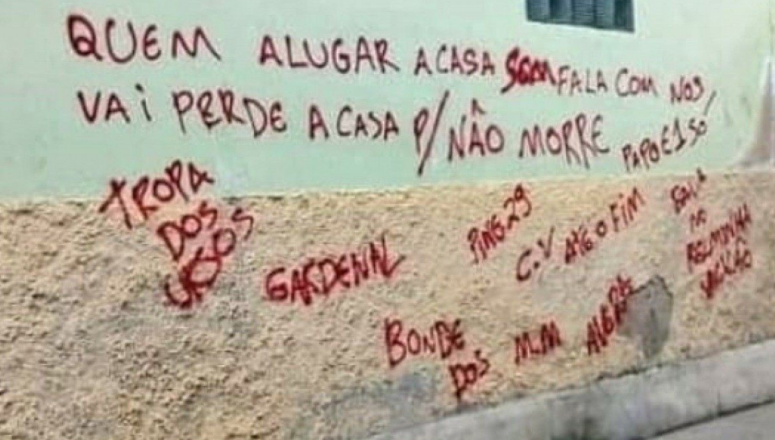 QUEM ALUGAR A CASA SEM FALA COM NOS,
VAI PERDE A CASA P/ NÂO MORRE PAPO E 1 SO
TROPA
DOS
URSOS
GARDENAL
PING 29
C.V ATÉ O FIM
BONDE
DOS M.M